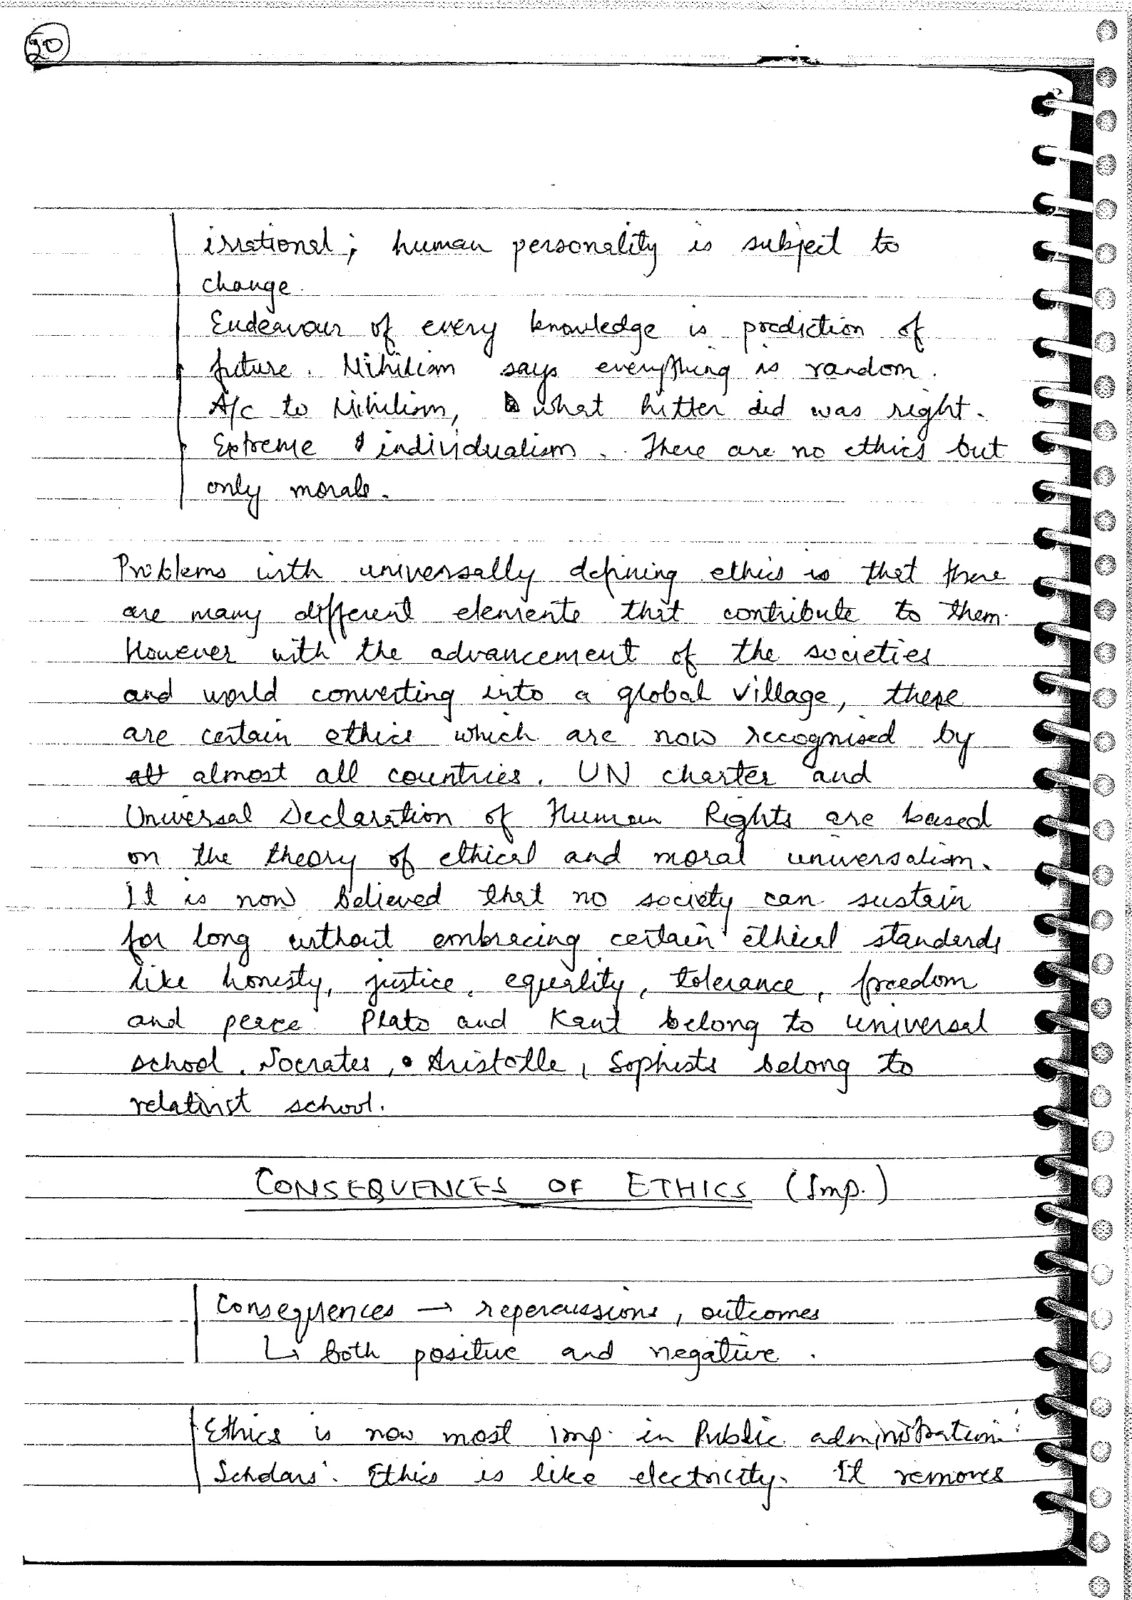 20
irrational; human personality is subject to
change.
Endeavour of every knowledge is prediction of
future. Nihilism says everything is random.
A/c to Nihilism, what hitter did was right.
Extreme individualism. There are no ethics but
only morals.
Problems with universally defining ethics is that there
are many different elements that contribute to them.
However with the advancement of the societies
and world converting into a global village, there
are certain ethics which are now recognised by
all almost all countries. UN charter and
Universal Declaration of Human Rights are based
on the theory of ethical and moral universalism.
It is now believed that no society can sustain
for long without embracing certain ethical standards
like honesty, justice, equality, tolerance, freedom
and peace. Plato and Kant belong to universal
school. Socrates, Aristotle, Sophists belong to
relativist school.
CONSEQUENCES OF ETHICS (Imp.)
Consequences → repercussions, outcomes
↳ both positive and negative.
Ethics is now most imp. in Public administration
Scholars. Ethics is like electricity. It removes